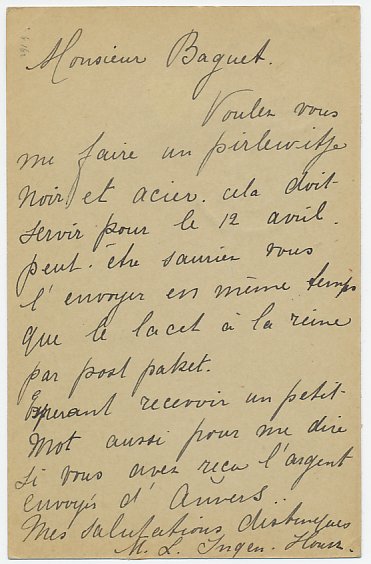 1913.
Monsieur Baguet.
Voulez vous
me faire un pirlewitje
noir et acier. cela doit
servir pour le 12 avril.
peut-être sauriez vous
l'envoyer en même temps
que le lacet à la reine
par post paket.
Esperant recevoir un petit
mot aussi pour me dire
si vous avez reçu l'argent
envoyés d'Anvers..
Mes salutations distingues
M. L. Ingen-Housz.